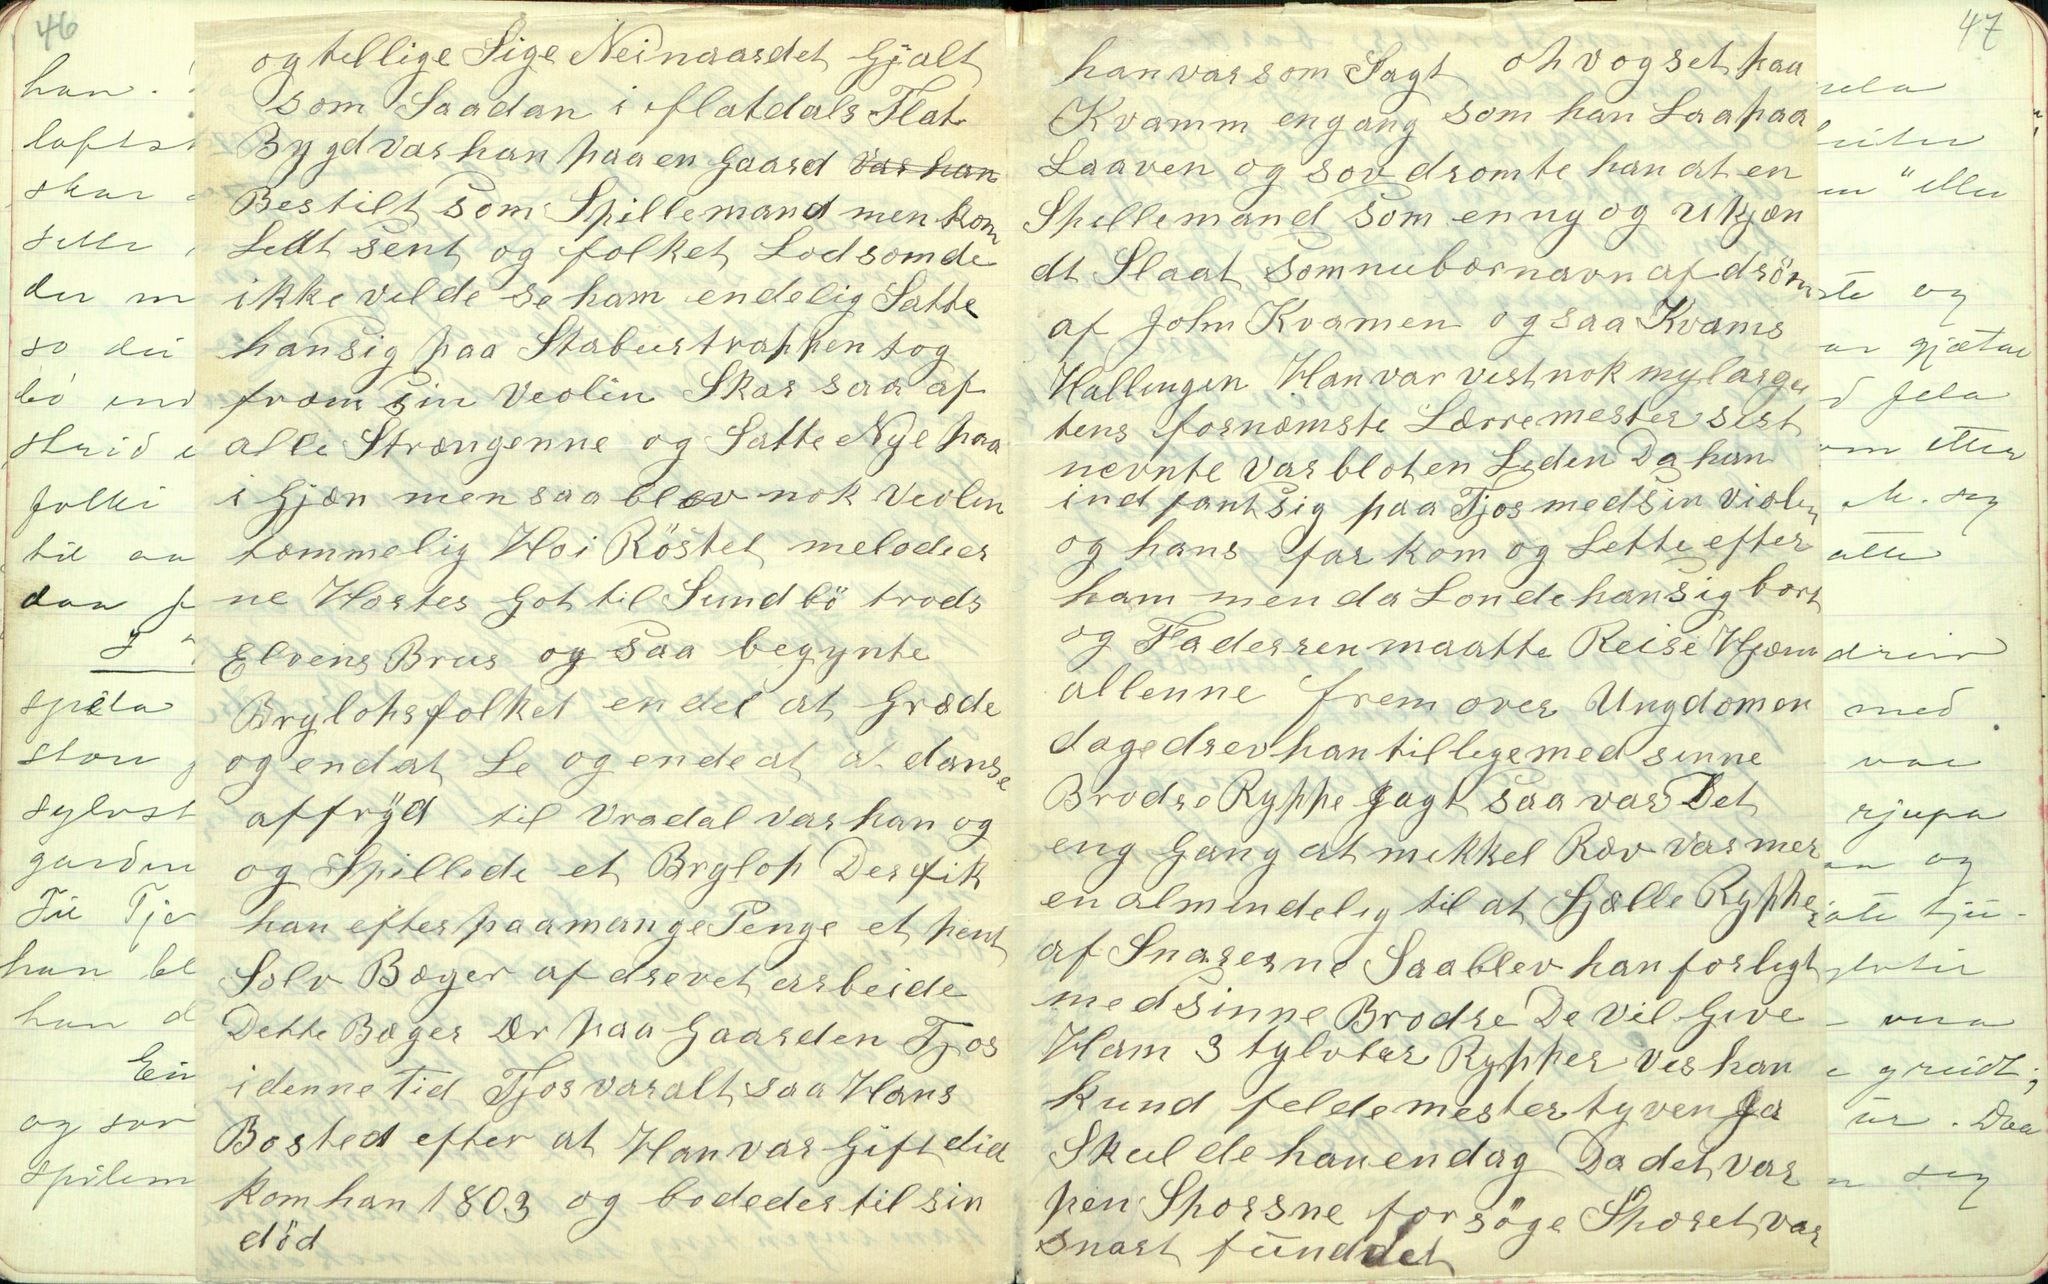 46
han.
loftst
skar
sette
der m
so dei
bö end
skrid
folki
til aa
dan f
spela
stov
sylvst
garden
Til Tjo
han bl
han d
Ein
og sov
spilem
og tellige Sige Nei naardet Gjalt
som Saadan i flatdals Flat
Bygd var han paa en Gaard var han
Bestilt som Spillemand men kom
Ledt sent og folket Lod som de
ikke velde se ham endelig Satte
han sig paa Staburstrappen tog
fræm sin Veolin Skar saa af
alle Strængenne og Satte Nye paa
i Gjæn men saa blev nok Veolin
tæmmelig Høi Röstet melodier
ne Hørtes Got til Sundbö trods
Elvens Brus og saa begynte
Brylopsfolket en del at Græde
og en dat Le og en de at at danse
af fryd til Vradal var han og
og Spillede et Brylop Der fik
han efter paa mange Penge et pent
Sølv Bæger af drevet arbeide
Dette Bæger Ær paa Gaarden Tjos
i denne Tid Tjos var alt saa Hans
Bosted efter at Han var Gift did
kom han 1803 og bodede der til sin
död
47
han var som Sagt oh vogset paa
Kvamm engang som han Laa paa
Laaven og sov dromte han at en
Spellemand som en ny og Ukjæn
dt Slaat som nu bær navn af dröm
af John Kvamen og saa Kvams
Hallingen Han var vestnok mylarge
tens fornæmste Lærremester sist
nevnte var blot en Leden Da han
ind fant sig paa Tjos med sin Violin
og hans far kom og Lette efter
ham men da Londe han sig bort
og Faderren maatte Reise Hjæm
allenne frem over Ungdomen
dage drev han tillige med sinne
Brodre Ryppe Jagt saa var Det
eng Gang at mekkel Ræv var mer
en almendelig til at Sjælle Ryppe
af Snarerne Saa blev han forligt
med sinne Brodre De Vil Give
Ham 3 tylvter Rypper Ves han
kund felde mestertyven Ja
Skulde han en dag Da det var
pen Sporsne forsöge Sporet var
snart fünddet
fela
eller
og
gjætar
fela
etter
M. seg
atte
med
var
rjupa
og
tju-
vera
greidt;
ur. Daa
seg